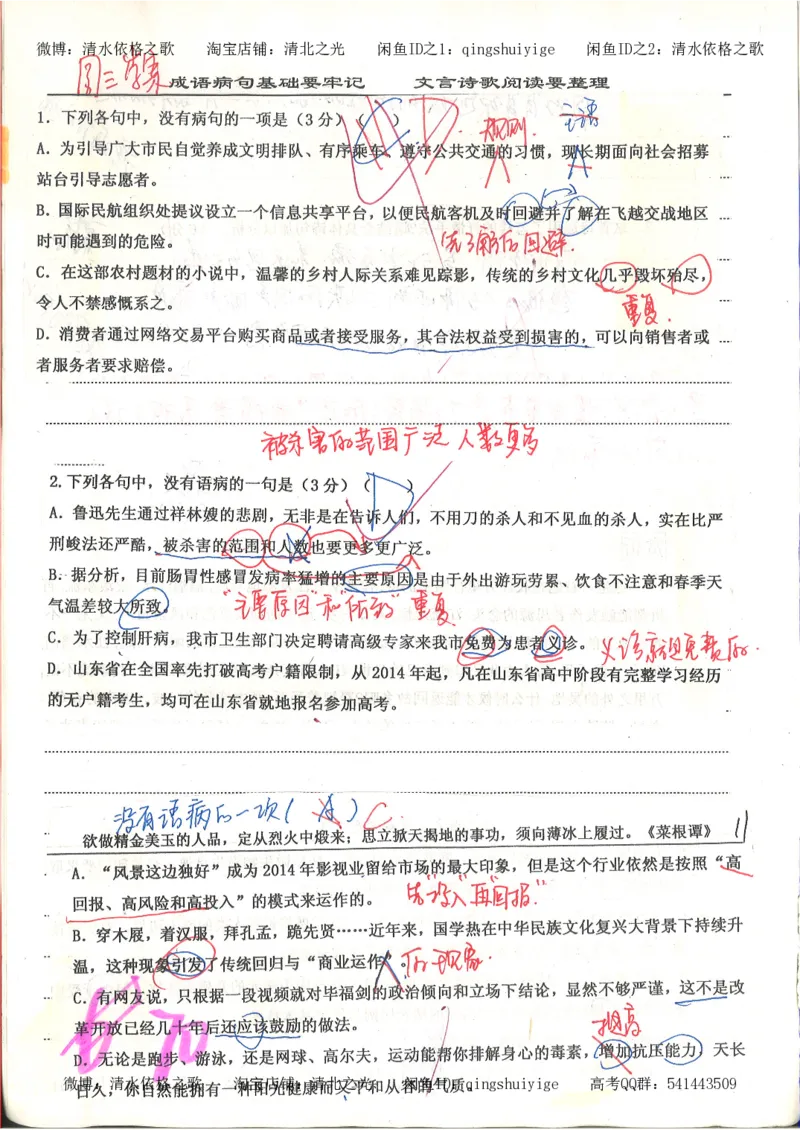 微博：清水依格之歌　淘宝店铺：清北之光　闲鱼ID之1：qingshuiyige　闲鱼ID之2：清水依格之歌
周三早餐
成语病句基础要牢记　文言诗歌阅读要整理
1．下列各句中，没有病句的一项是（3分）（ D ）
规则．
主语
A．为引导广大市民自觉养成文明排队、有序乘车、遵守公共交通的习惯，现长期面向社会招募
站台引导志愿者。
B．国际民航组织处提议设立一个信息共享平台，以便民航客机及时回避并了解在飞越交战地区
时可能遇到的危险。
先了解后回避．
C．在这部农村题材的小说中，温馨的乡村人际关系难见踪影，传统的乡村文化几乎毁坏殆尽，
令人不禁感慨系之。
重复．
D．消费者通过网络交易平台购买商品或者接受服务，其合法权益受到损害的，可以向销售者或
者服务者要求赔偿。
被杀害的范围广泛 人数更多
2.下列各句中，没有语病的一句是（3分）（ D ）
A．鲁迅先生通过祥林嫂的悲剧，无非是在告诉人们，不用刀的杀人和不见血的杀人，实在比严
刑峻法还严酷，被杀害的范围和人数也要更多更广泛。
B．据分析，目前肠胃性感冒发病率猛增的主要原因是由于外出游玩劳累、饮食不注意和春季天
气温差较大所致。
“主要原因”和“所致”重复
C．为了控制肝病，我市卫生部门决定聘请高级专家来我市免费为患者义诊。
义诊就是免费的．
D．山东省在全国率先打破高考户籍限制，从 2014 年起，凡在山东省高中阶段有完整学习经历
的无户籍考生，均可在山东省就地报名参加高考。
没有语病的一项（ A ）C．
欲做精金美玉的人品，定从烈火中煅来；思立掀天揭地的事功，须向薄冰上履过。《菜根谭》 11
A．“风景这边独好”成为 2014 年影视业留给市场的最大印象，但是这个行业依然是按照“高
回报、高风险和高投入”的模式来运作的。
先“投入”再“回报．”
B．穿木屐，着汉服，拜孔孟，跪先贤……近年来，国学热在中华民族文化复兴大背景下持续升
温，这种现象引发了传统回归与“商业运作”。
的现象．
C．有网友说，只根据一段视频就对毕福剑的政治倾向和立场下结论，显然不够严谨，这不是改
革开放已经几十年后还应该鼓励的做法。
提高
D．无论是跑步、游泳，还是网球、高尔夫，运动能帮你排解身心的毒素，增加抗压能力，天长
日久，你自然能拥有一种阳光健康而又平和从容的气质。
微博：清水依格之歌　淘宝店铺：清北之光　闲鱼ID：qingshuiyige　高考QQ群：541443509